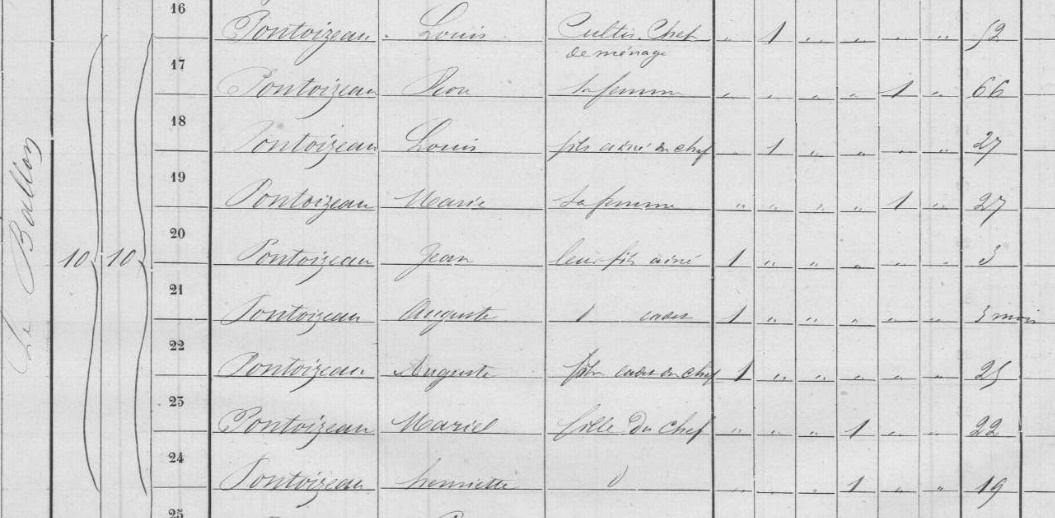 Le Ballon
10 10
16 Pontoizeau Louis Cultiv. Chef de ménage " 1 " " " " 52
17 Pontoizeau sa femme " " " " 1 " 66
18 Pontoizeau Louis fils ainé du chef " 1 " " " " 27
19 Pontoizeau Marie sa femme " " " " 1 " 27
20 Pontoizeau Jean leur fils ainé 1 " " " " " 3
21 Pontoizeau Auguste d cadet 1 " " " " " 3 mois
22 Pontoizeau Auguste fils cadet du chef 1 " " " " " 25
23 Pontoizeau Marie fille du chef " " " 1 " " 22
24 Pontoizeau henriette d " " " 1 " " 19
25